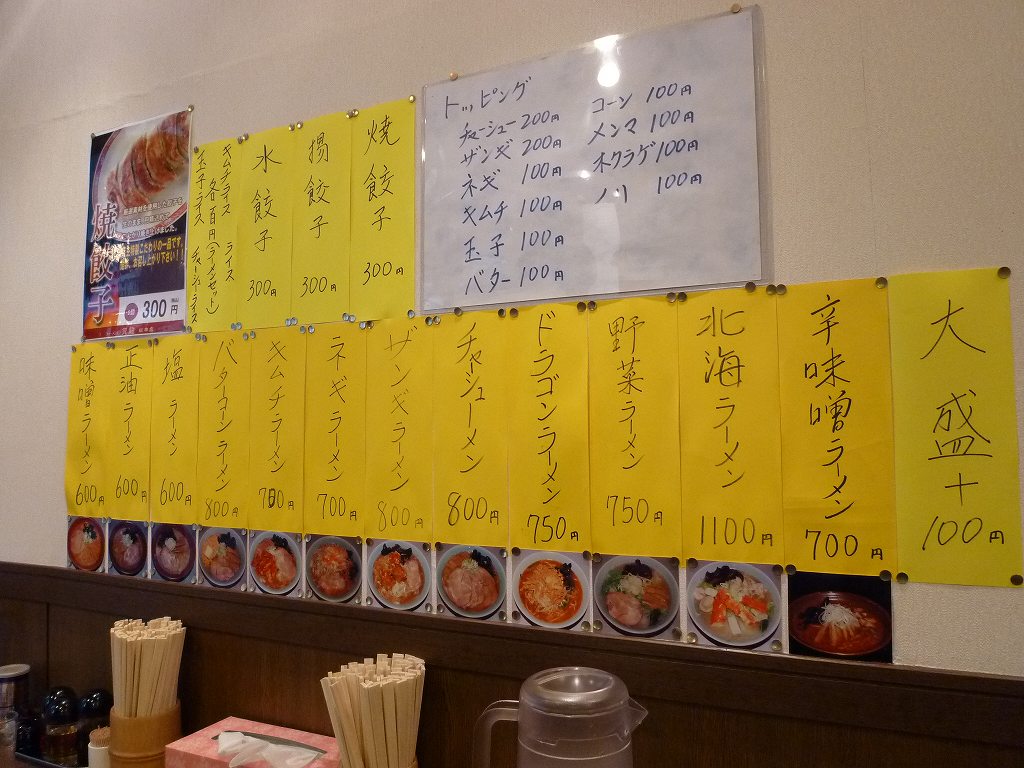 焼餃子
300円
キムチライス ライス
各百円(ラーメンセット)
玉子ライス チャーシューライス
水餃子
300円
揚餃子
300円
焼餃子
300円
トッピング
チャーシュー 200円
ザンギ 200円
ネギ 100円
キムチ 100円
玉子 100円
バター 100円
コーン 100円
メンマ 100円
キクラゲ 100円
ノリ 100円
味噌ラーメン
600円
正油ラーメン
600円
塩ラーメン
600円
バターコーンラーメン
800円
キムチラーメン
円
ネギラーメン
700円
ザンギラーメン
800円
チャーシューメン
800円
ドラゴンラーメン
750円
野菜ラーメン
750円
北海ラーメン
1100円
辛味噌ラーメン
700円
大盛+
100円